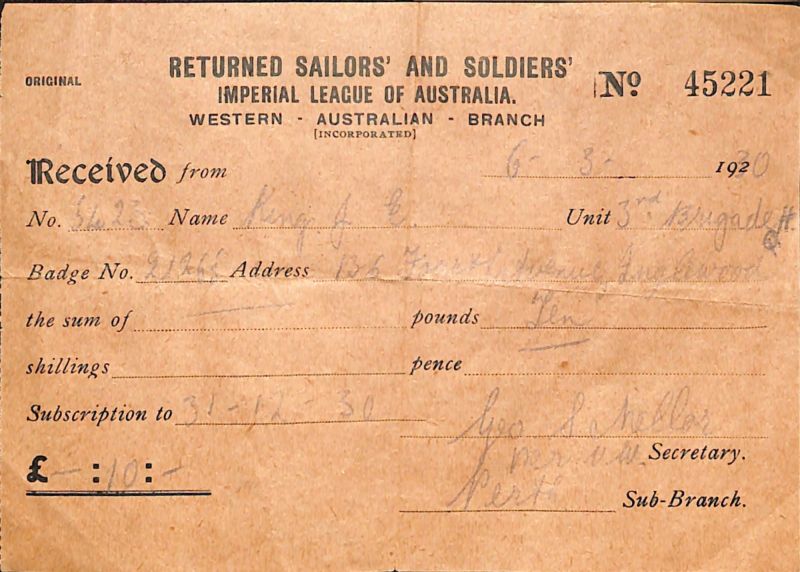 ORIGINAL
RETURNED SAILORS' AND SOLDIERS'
IMPERIAL LEAGUE OF AUSTRALIA.
No. 45221
WESTERN - AUSTRALIAN - BRANCH
[INCORPORATED]
Received from 6 - 3 - 1930
No. Name King J E. Unit 3rd Brigade H Q
Badge No. Address Avenue Inglewood
the sum of pounds Ten
shillings pence
Subscription to 31-12-30
Geo S Mellor
Secretary.
£ - : 10 : -
Perth Sub-Branch.